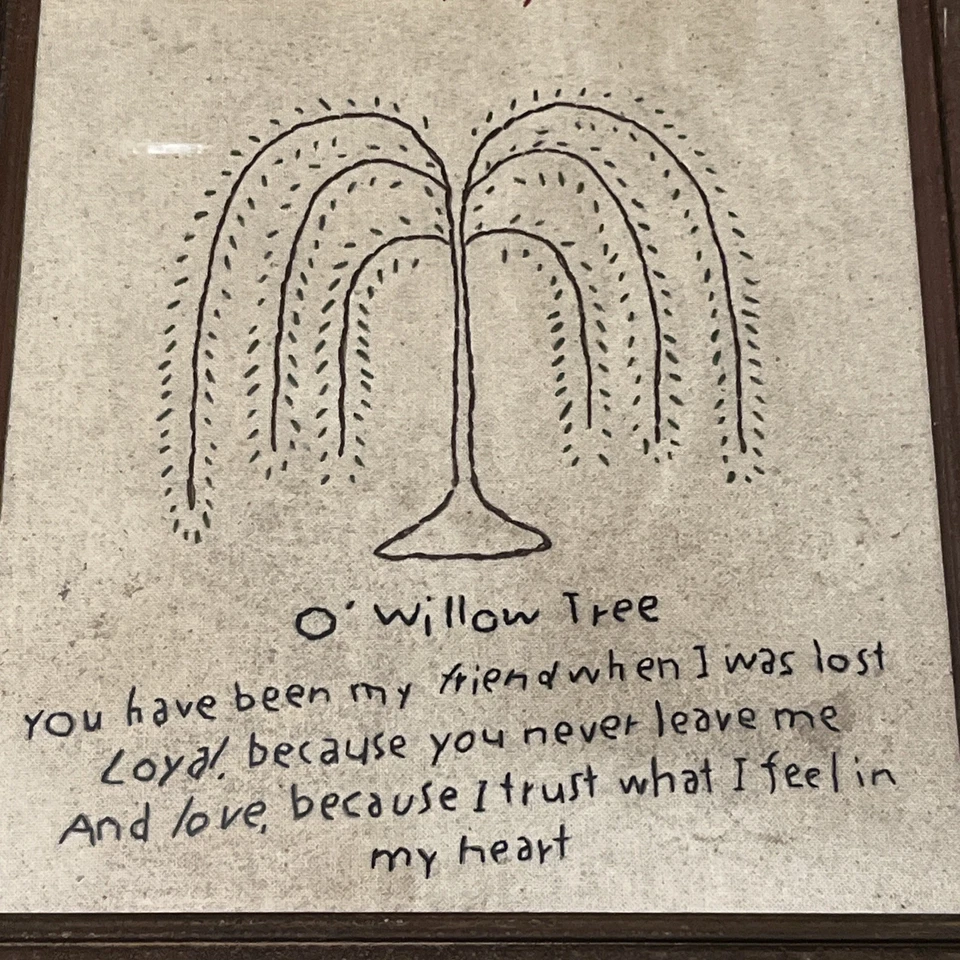 O' Willow Tree
you have been my friend when I was lost
Loyal, because you never leave me
And love, because I trust what I feel in
my heart